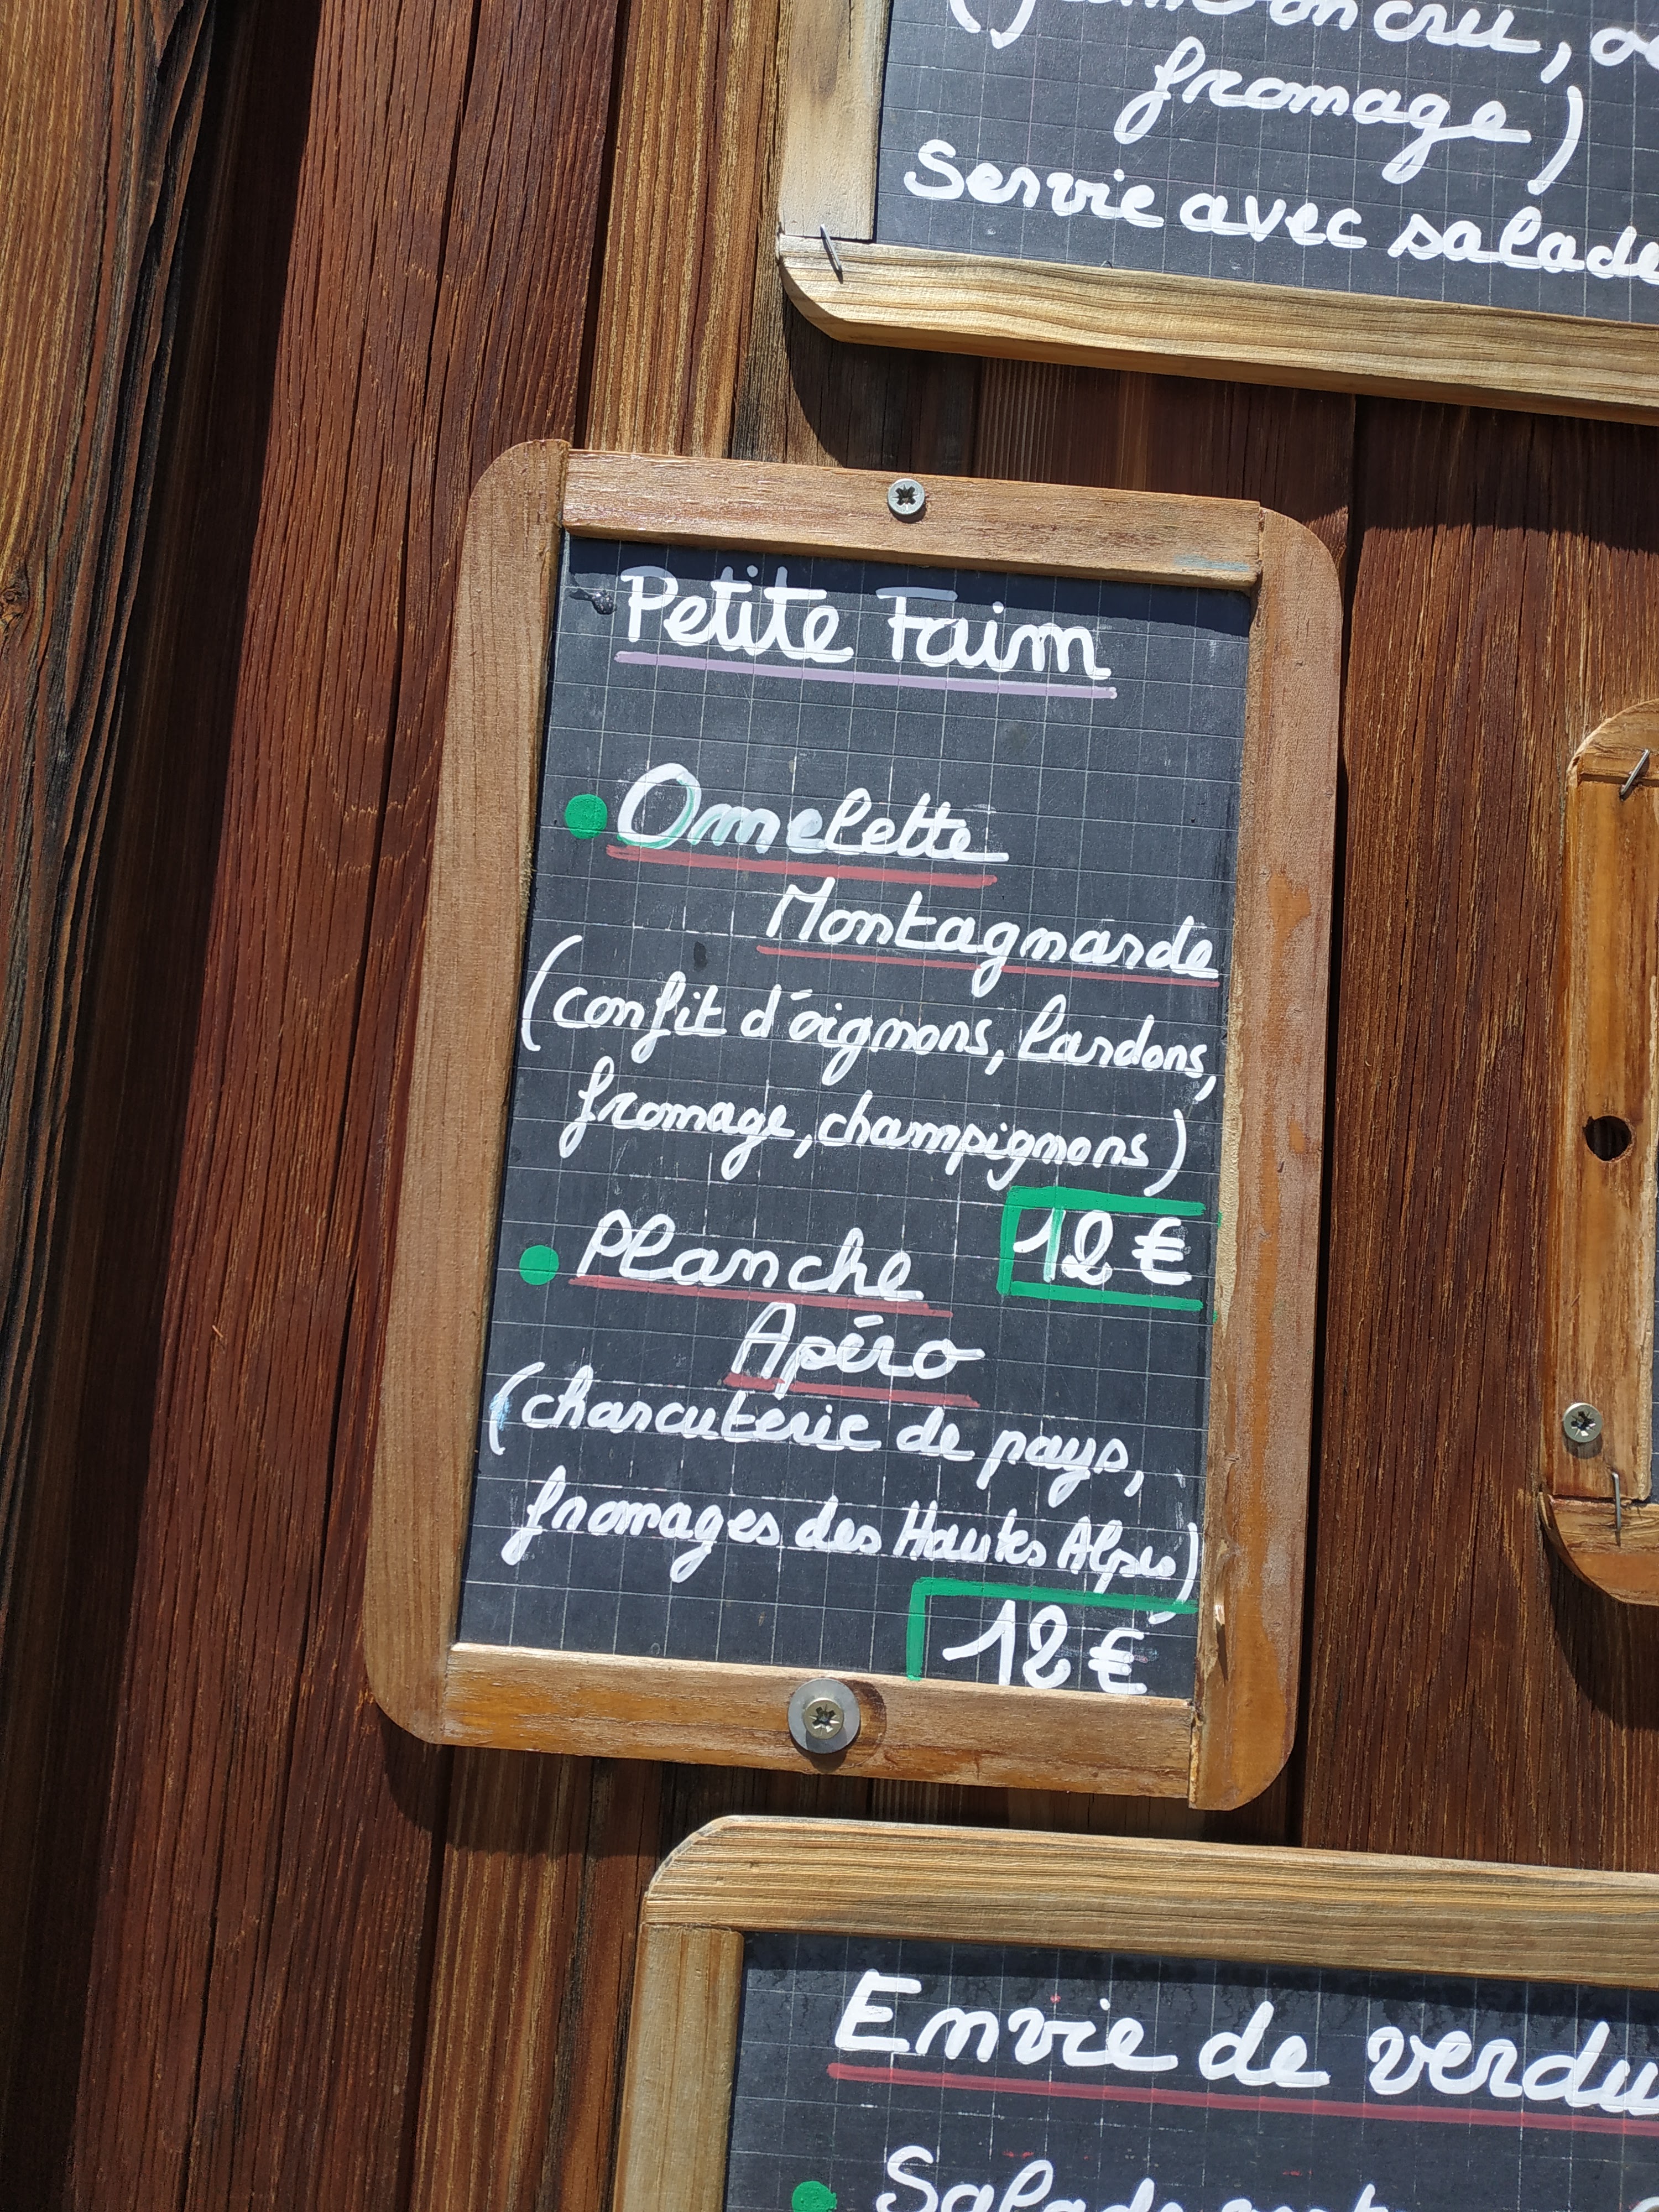 cru,
fromage)
Servie avec salade
Petite Faim
Omelette
Montagnarde
(confit d'oignons, lardons,
fromage, champignons)
12 €
Planche
Apéro
(charcuterie de pays,
fromages des Hautes Alpes)
12 €
Envie de